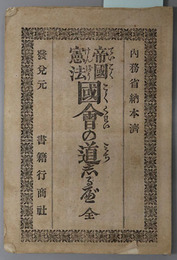 内務省納本濟
帝國
憲法
國會の道志る遍 全
發兌元 書籍行商社